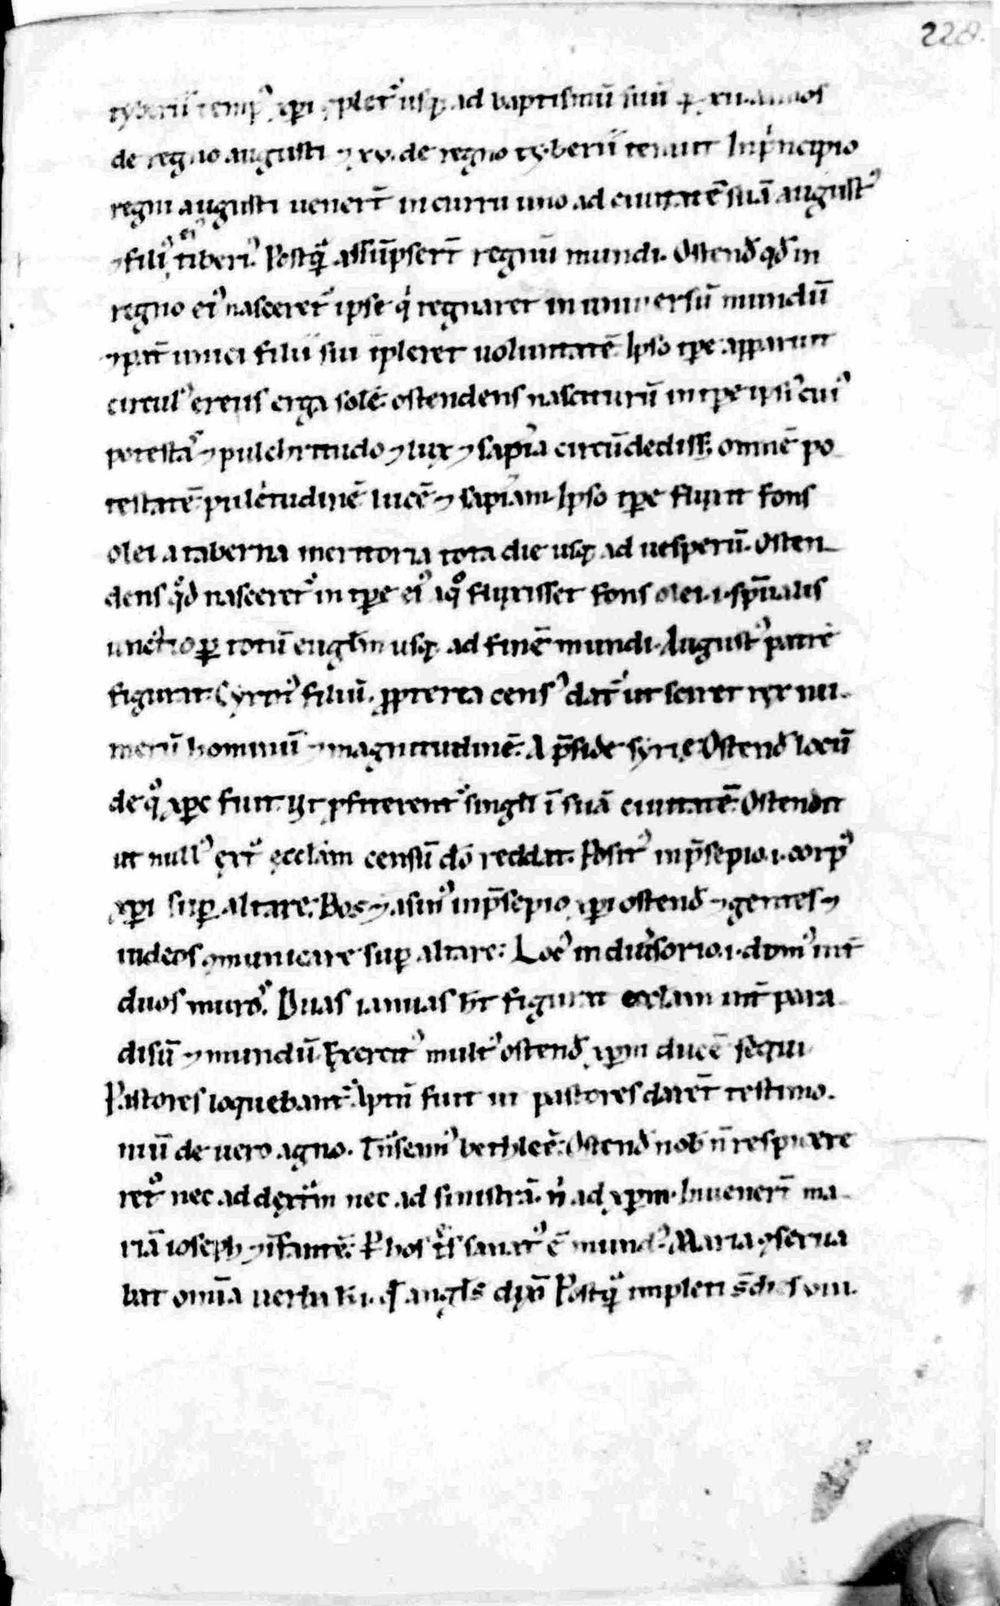 228.
tyberii temp᾽ xp̄i ɔplet᾽ usq; ad baptismū suū ꝑ xii. annos
de regno augusti ⁊ xv. de regno tyberii tenuit In p'ncipio
regni augusti uener̄t in curru uno ad ciuitatē suā august᾽
⁊ fili᾽ ei᾽ tiberi᾽. Postq̄ᵃ assūpser̄t regnū mundi. Ostend̄ qd̄ in
regno ei᾽ nasceret᾽ ipse q' regnaret in uniuersū mundū
⁊ pat̄ unici filii sui īpleret uoluntatē. Ipso tp̄e apparuit
circul᾽ ereus erga solē. ostendens nasciturū in tp̄e ipsi᾽ cui᾽
potesta᾽ ⁊ pulchritudo ⁊ lux ⁊ sapīa circūdediss; omnē po
testatē pulc'tudinē lucē ⁊ sapīam. Ipso tp̄e fluxit fons
olei a taberna meritoria tota die usq; ad uesperū. Osten
dens qd̄ nasceret᾽ in tp̄e ei᾽ a qᵒ fluxisset fons olei .i. sp̄ualis
unctio ꝑ totū euglm̄ usq; ad finē mundi. August᾽ patrē
figurat. Cyrin᾽ filiū. ꝓpterea cens᾽ dat᾽ ut sciret rex nu
merū hominū ⁊ magnitudinē. A p̄side syrie Ostend̄ locū
de qᵒ xp̄c fuit. Ut ꝓfiterent᾽ singl'i ī suā ciuitatē. Ostendit
ut null᾽ ext᾽ ecclam̄ censū dō reddat. Posit᾽ in p̄sepio .i. corp᾽
xp̄i sup altare. Bos ⁊ asin᾽ in p̄sepio xp̄i ostend̄ ⁊ gentes ⁊
iudeos ɔmunicare sup altare. Loc᾽ in diu'sorio .i. dom᾽ int̄
duos muros. Duas ianuas h̄t figurat ecclam int̄ para
disū ⁊ mundū. Exercit᾽ mult᾽ ostend̄ xp̄m ducē sequi
Pastores loquebant᾽. Aptū fuit ut pastores darēt testimo.
niū de uero agno. Trāseam᾽ bethleē. Ostend̄ nob̄ n̄ respicere
ret᾽ nec ad dext'm nec ad sinistrā. n̄ ad xp̄m. Inuener̄t ma
riā ioseph ⁊ īfantē. P hos t̄s sanat᾽ ē mund᾽. Maria ɔserua
bat omīa uerba h̄. i. q̄ angl's dix̄ Postq̄ᵃ impleti s̄ dies octa.